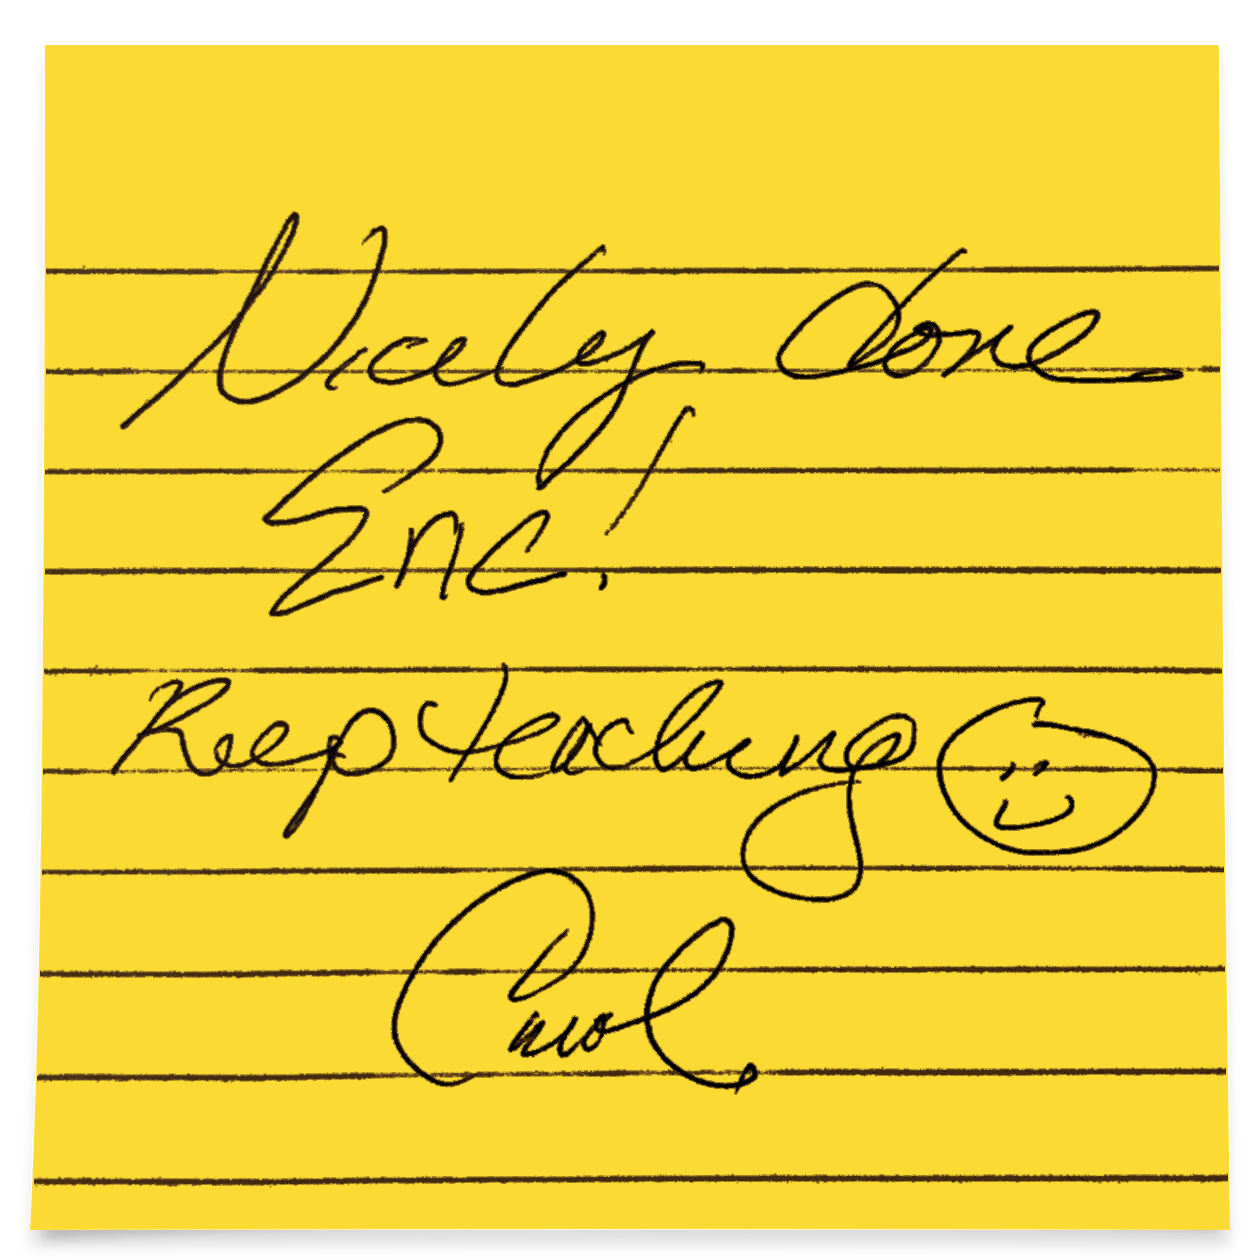 Nicely done
Eric!
Keep teaching
Carol